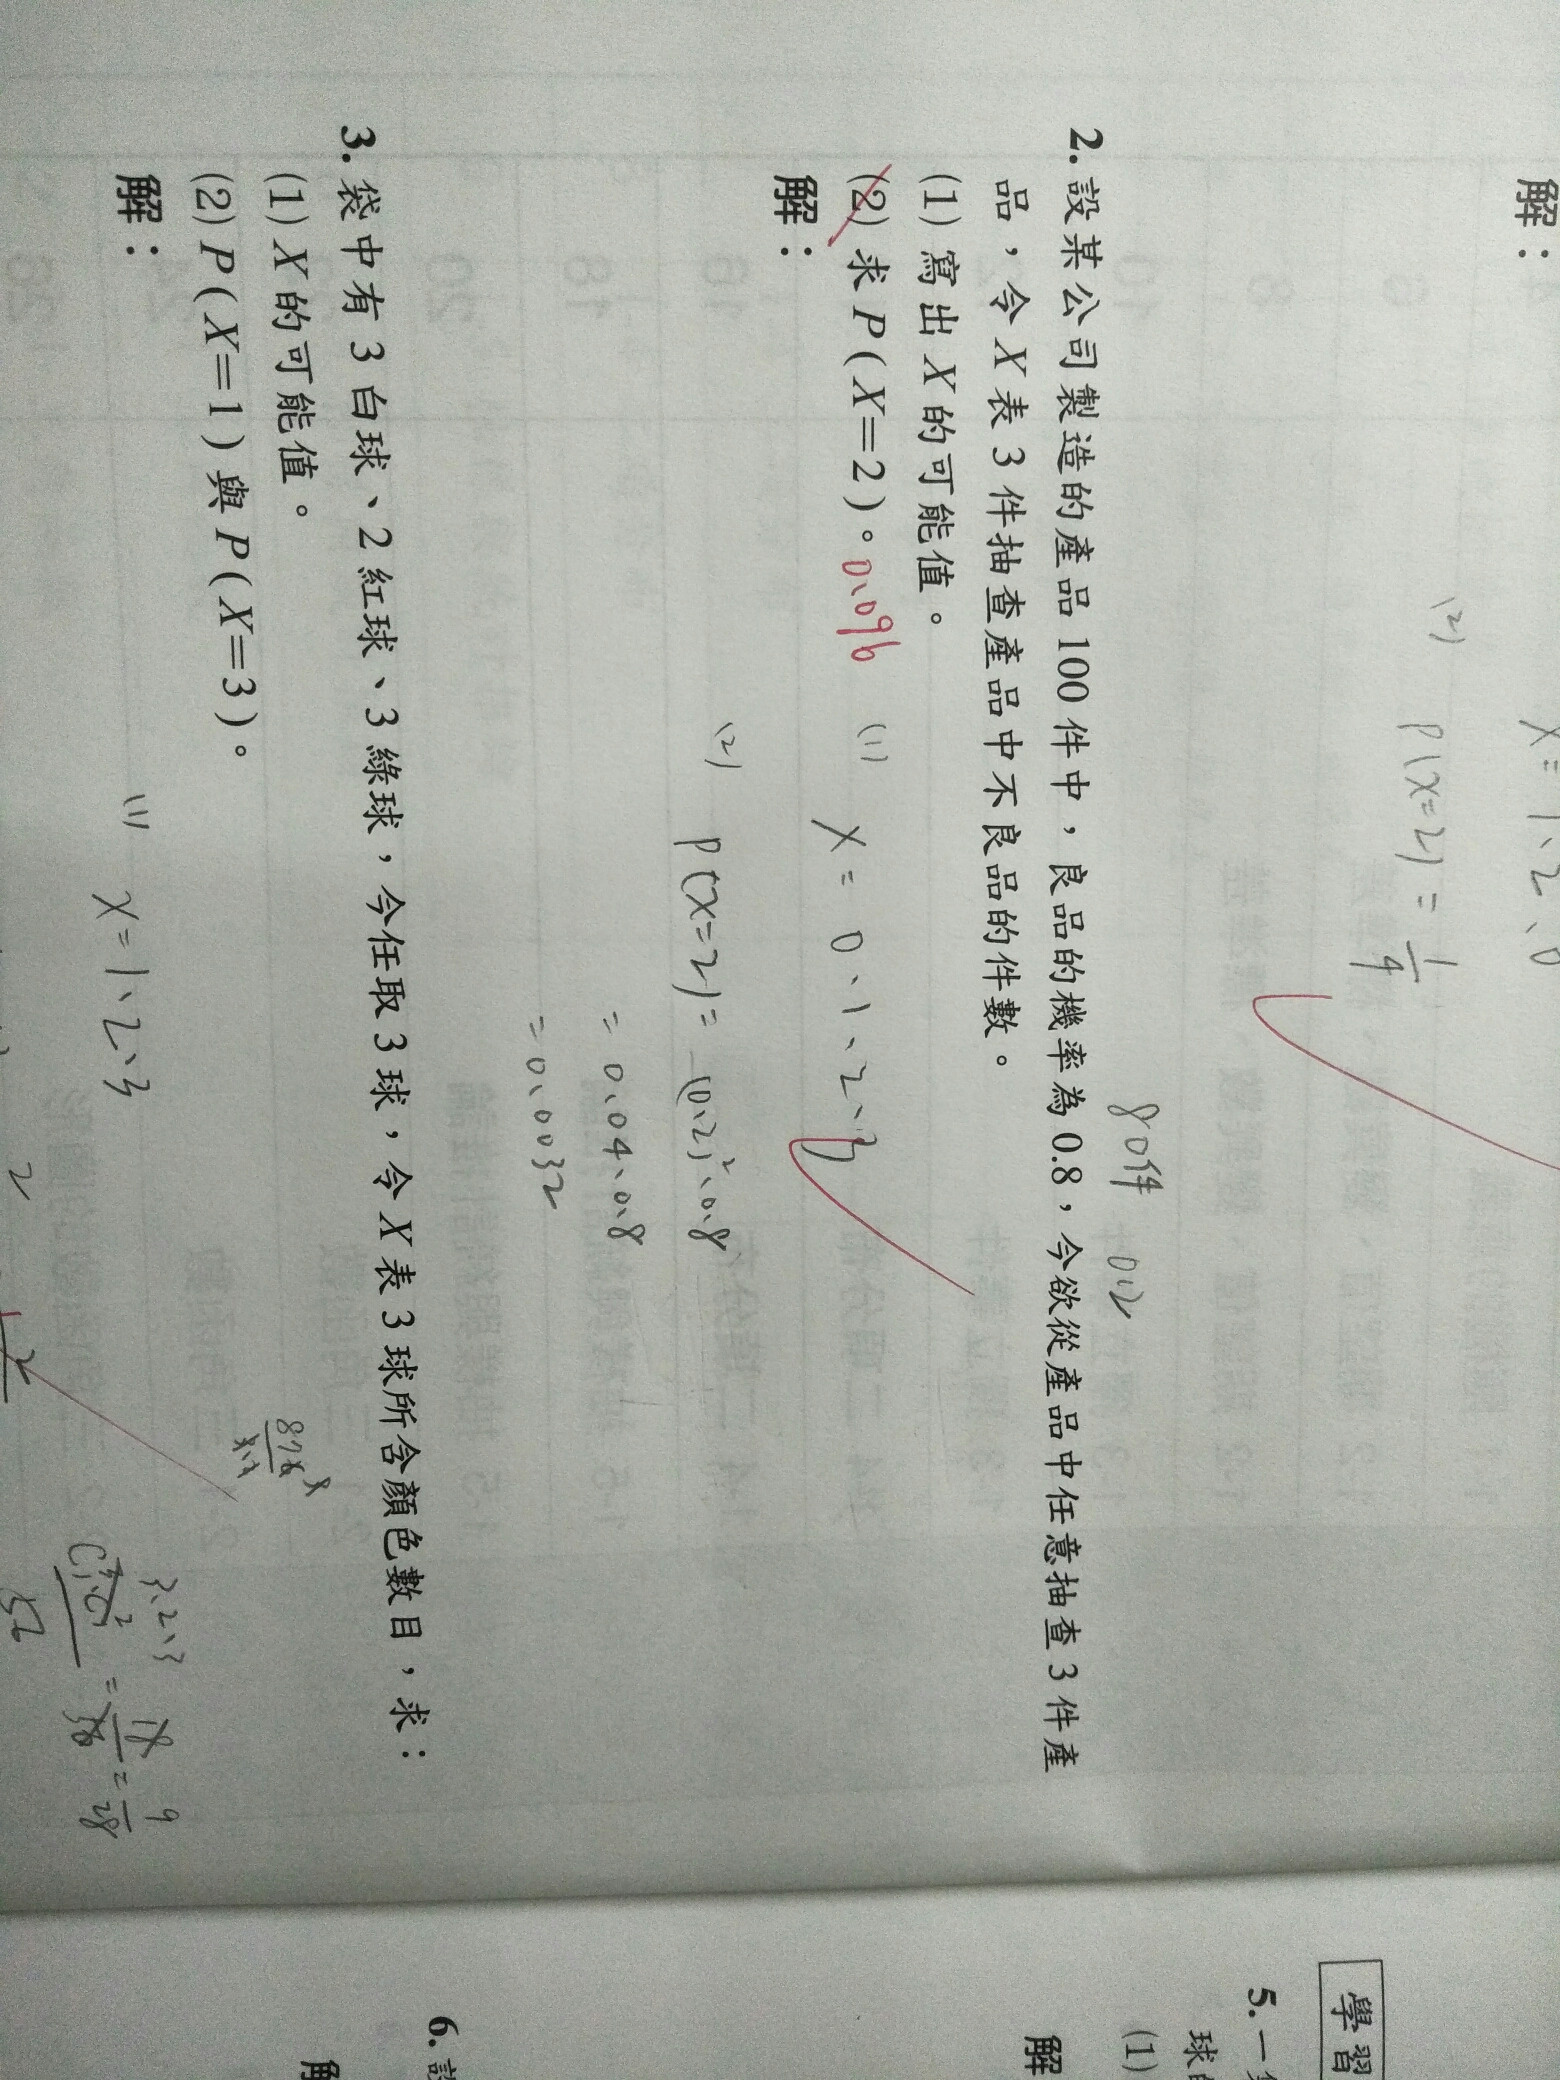 解：
X=1、2、0
(2)
P(X=2)=1/4
80件 0.2
2. 設某公司製造的產品 100 件中，良品的機率為 0.8，今欲從產品中任意抽查 3 件產
品，令 X 表 3 件抽查產品中不良品的件數。
(1) 寫出 X 的可能值。
(2) 求 P(X=2)。0.096
解：
(1) X = 0、1、2、3
(2) P(X=2)=(0.2)²、0.8
= 0.04、0.8
= 0.0032
3. 袋中有 3 白球、2 紅球、3 綠球，今任取 3 球，令 X 表 3 球所含顏色數目，求：
(1) X 的可能值。
(2) P(X=1) 與 P(X=3)。
解：
(1) X=1、2、3
3、2、3
56
= 18/56 = 9/28
2
學習
5. 一
球
(1)
解
6. 設
解